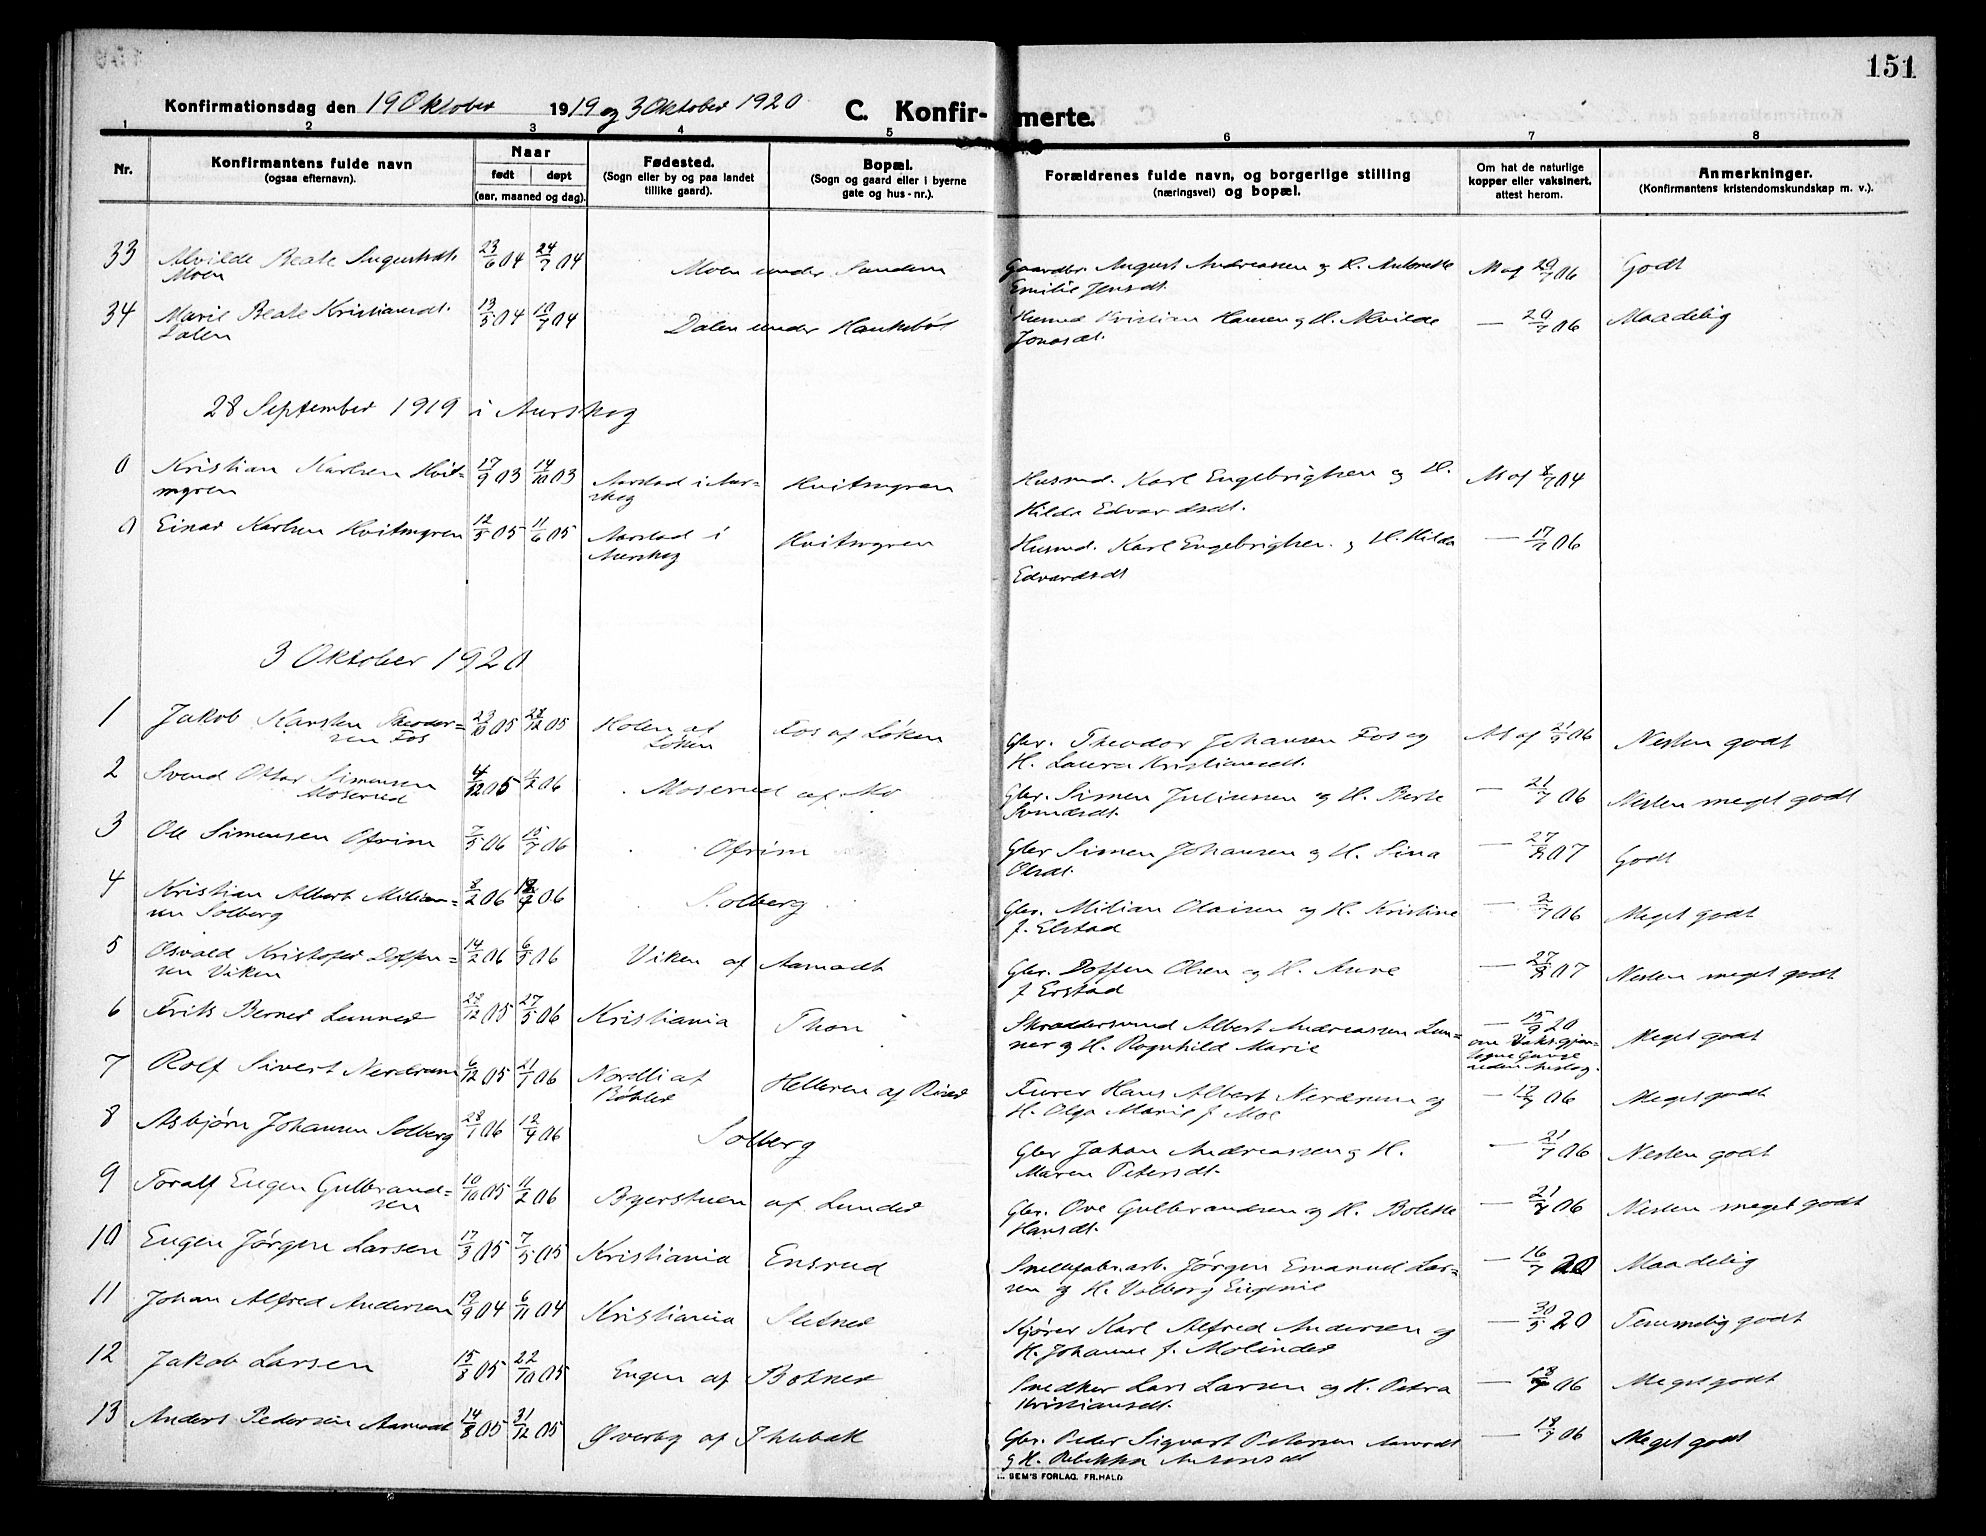 151
Konfirmationsdag den 19 Oktober 1919 og 3 Oktober 1920 C. Konfirmerte.
1 2 3 4 5 6 7 8
Nr.
Konfirmantens fulde navn
(ogsaa efternavn).
Naar
født døpt
(aar, maaned og dag).
Fødested.
(Sogn eller by og paa landet
tillike gaard).
Bopæl.
(Sogn og gaard eller i byerne
gate og hus-nr.).
Forældrenes fulde navn, og borgerlige stilling
(næringsvei) og bopæl.
Om hat de naturlige
kopper eller vaksinert.
attest herom.
Anmerkninger.
(Konfirmantens kristendomskundskap m. v.).
33 Alvilde Beate Augustsdt. 23/6 04 24/7 04 Moen under Sandem Gaardbr. August Andreassen og H. Emilie Jensdt. M af 20/7 06 Godt
Moen
34 Marie Beate Kristiansdt. 13/5 04 10/7 04 Dalen under Husmd Kristian Hansen og H. Alvilde Jonasdt. — 20/7 06 Maadelig
Dalen
28 September 1919 i Aurskog
0 Kristian Karlsen Hvit- 17/9 03 14/10 03 Aarstad i Aur- Hvitmyren Husmd. Karl Engebrigtsen og H. M af 8/7 04
myren skog Hilda Edvardsdt.
0 Einar Karlsen Hvitmyren 12/5 05 11/6 05 Aarstad i Hvitmyren Husmd. Karl Engebrigtsen og H. Hilda — 17/7 06
Aurskog Edvardsdt
3 Oktober 1920
1 Jakob Karsten Theodor- 23/10 05 28/12 05 Holen af Fos af Løken Gbr. Theodor Johansen Fos og At af 21/9 06 Nesten godt
sen Fos Løken H. Laura Kristiansdt.
2 Svend Ottar Simensen 4/12 05 2 06 Moserud af Mo Gbr. Simen Juliussen og H. Berte — 21/7 06 Nesten meget godt
Moserud Svendsdt.
3 Ole Simensen Ofrim 7/5 06 15/7 06 Ofrim Gbr Simen Johansen og H. Lina — 27/8 07 Godt
Olsdt.
4 Kristian Albert Milian- 8/2 06 06 Solberg Gbr. Milian Olaisen og H. Kristine — 2/7 06 Meget godt
sen Solberg f. Elstad
5 Osvald Kristofer Doffen- 14/2 06 6/5 06 Viken af Aamodt Gbr. Doffen Olsen og H. Anne — 27/8 07 Nesten meget godt
sen Viken f. Erstad
6 Frits Berner Lunner 22/12 05 27/5 06 Kristiania Thon Skræddersvend Albert Andreassen Lun- — 15/9 20 Meget godt
ner og H. Ragnhild Marie
7 Rolf Sivert Nerdrum 6/12 05 21/1 06 Nordli af Helleren af Furer Hans Albert Nerdrum og — 17/7 06 Meget godt
H. Olga Marie f. Moe
8 Asbjørn Johansen Solberg 28/1 06 06 Solberg Gbr Johan Andreassen og H. — 21/7 06 Nesten godt
Maren Petersdt.
9 Toralf Eugen Gulbrand- 10/10 05 11/2 06 Byerstuen af Lunder Gbr. Ove Gulbrandsen og H. Bolette — 21/7 06 Nesten meget godt
sen Hansdt.
10 Eugen Jørgen Larsen 17/3 05 7/5 05 Kristiania Ensrud Jørgen Emanuel Lar- — 16/7 20 Maadelig
sen og H. Valborg Eugenie
11 Johan Alfred Andersen 19/9 04 6/11 04 Kristiania Sletner Kjører Karl Alfred Andersen og — 30/5 20 Temmelig godt
H. Johanne f. Molinder
12 Jakob Larsen 15/8 05 22/10 05 Engen af Botner Snedker Lars Larsen og H. Petra — 18/7 06 Meget godt
Kristiansdt.
13 Anders Pedersen Aamodt 14/8 05 31/12 05 Øverby af Gbr. Peder Sigvart Petersen Aamodt — 18/7 06 Meget godt
og H. Rebekka Antonsdt
SEM'S FORLAG. FR.HALD